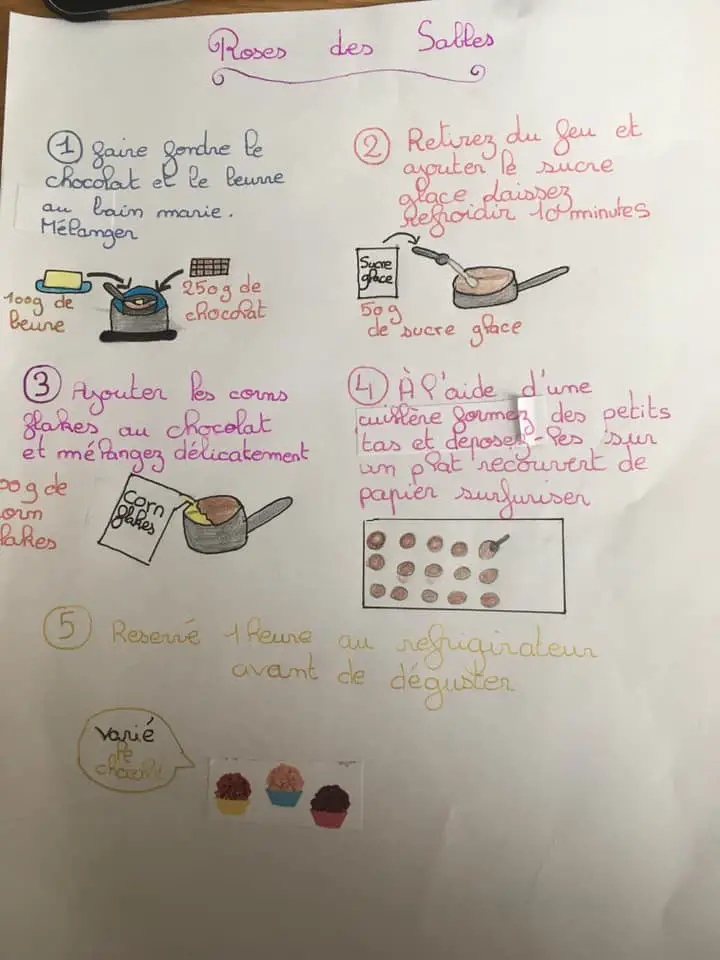 Roses des Sables
① faire fondre le
chocolat et le beurre
au bain marie.
Mélanger
100g de
beurre
250g de
chocolat
② Retirez du feu et
ajouter le sucre
glace laissez
Refroidir 10 minutes
Sucre
glace
50g
de sucre glace
③ Ajouter les corns
flakes au chocolat
et mélangez délicatement
00g de
orn
lakes
Corn
flakes
④ À l'aide d'une
cuillère formez des petits
tas et deposez-les sur
un plat recouvert de
papier surfuriser
⑤ Reservé 1 heure au refrigirateur
avant de déguster
varié
le
chocolat